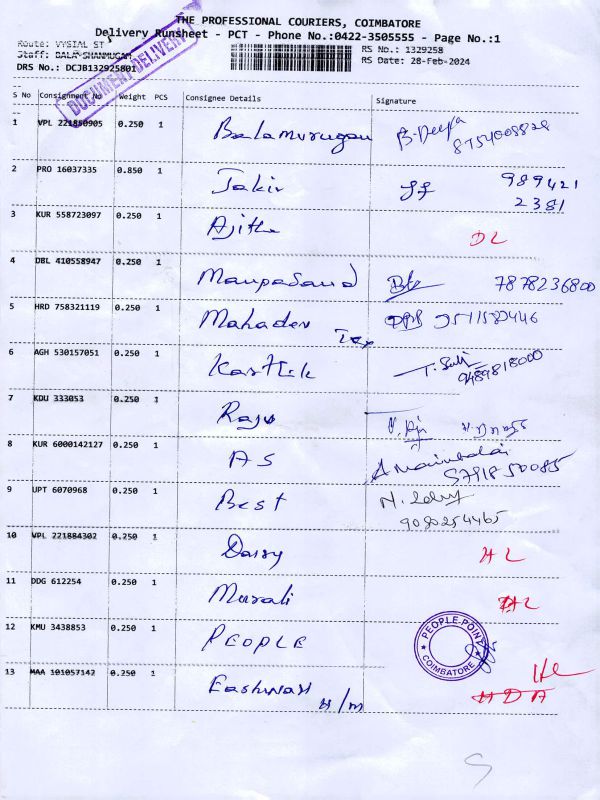 THE PROFESSIONAL COURIERS, COIMBATORE
Delivery Runsheet - PCT - Phone No.:0422-3505555 - Page No.:1
Route: VYSIAL ST
RS No.: 1329258
Staff: BALA SHANMUGAM
RS Date: 28-Feb-2024
DRS No.: DCJB132925801
DOCUMENT DELIVERY
S No Consignment No Weight PCS Consignee Details Signature
1 VPL 221850905 0.250 1 Balamurugan B-Deepa
8754008828
2 PRO 16037335 0.850 1 Jakir 989421
2381
3 KUR 558723097 0.250 1 Ajith DL
4 DBL 410558947 0.250 1 7878236800
5 HRD 758321119 0.250 1 Mahadev Tex
6 AGH 530157051 0.250 1 Karthik
9489818000
7 KDU 333053 0.250 1 Raju
8 KUR 6000142127 0.250 1 AS
9 UPT 6070968 0.250 1 Best
9080254465
10 VPL 221884302 0.250 1 HL
11 DDG 612254 0.250 1 Murali
12 KMU 3438853 0.250 1 PEOPLE PEOPLE-POINT COIMBATORE
13 MAA 101057142 0.250 1 H/M